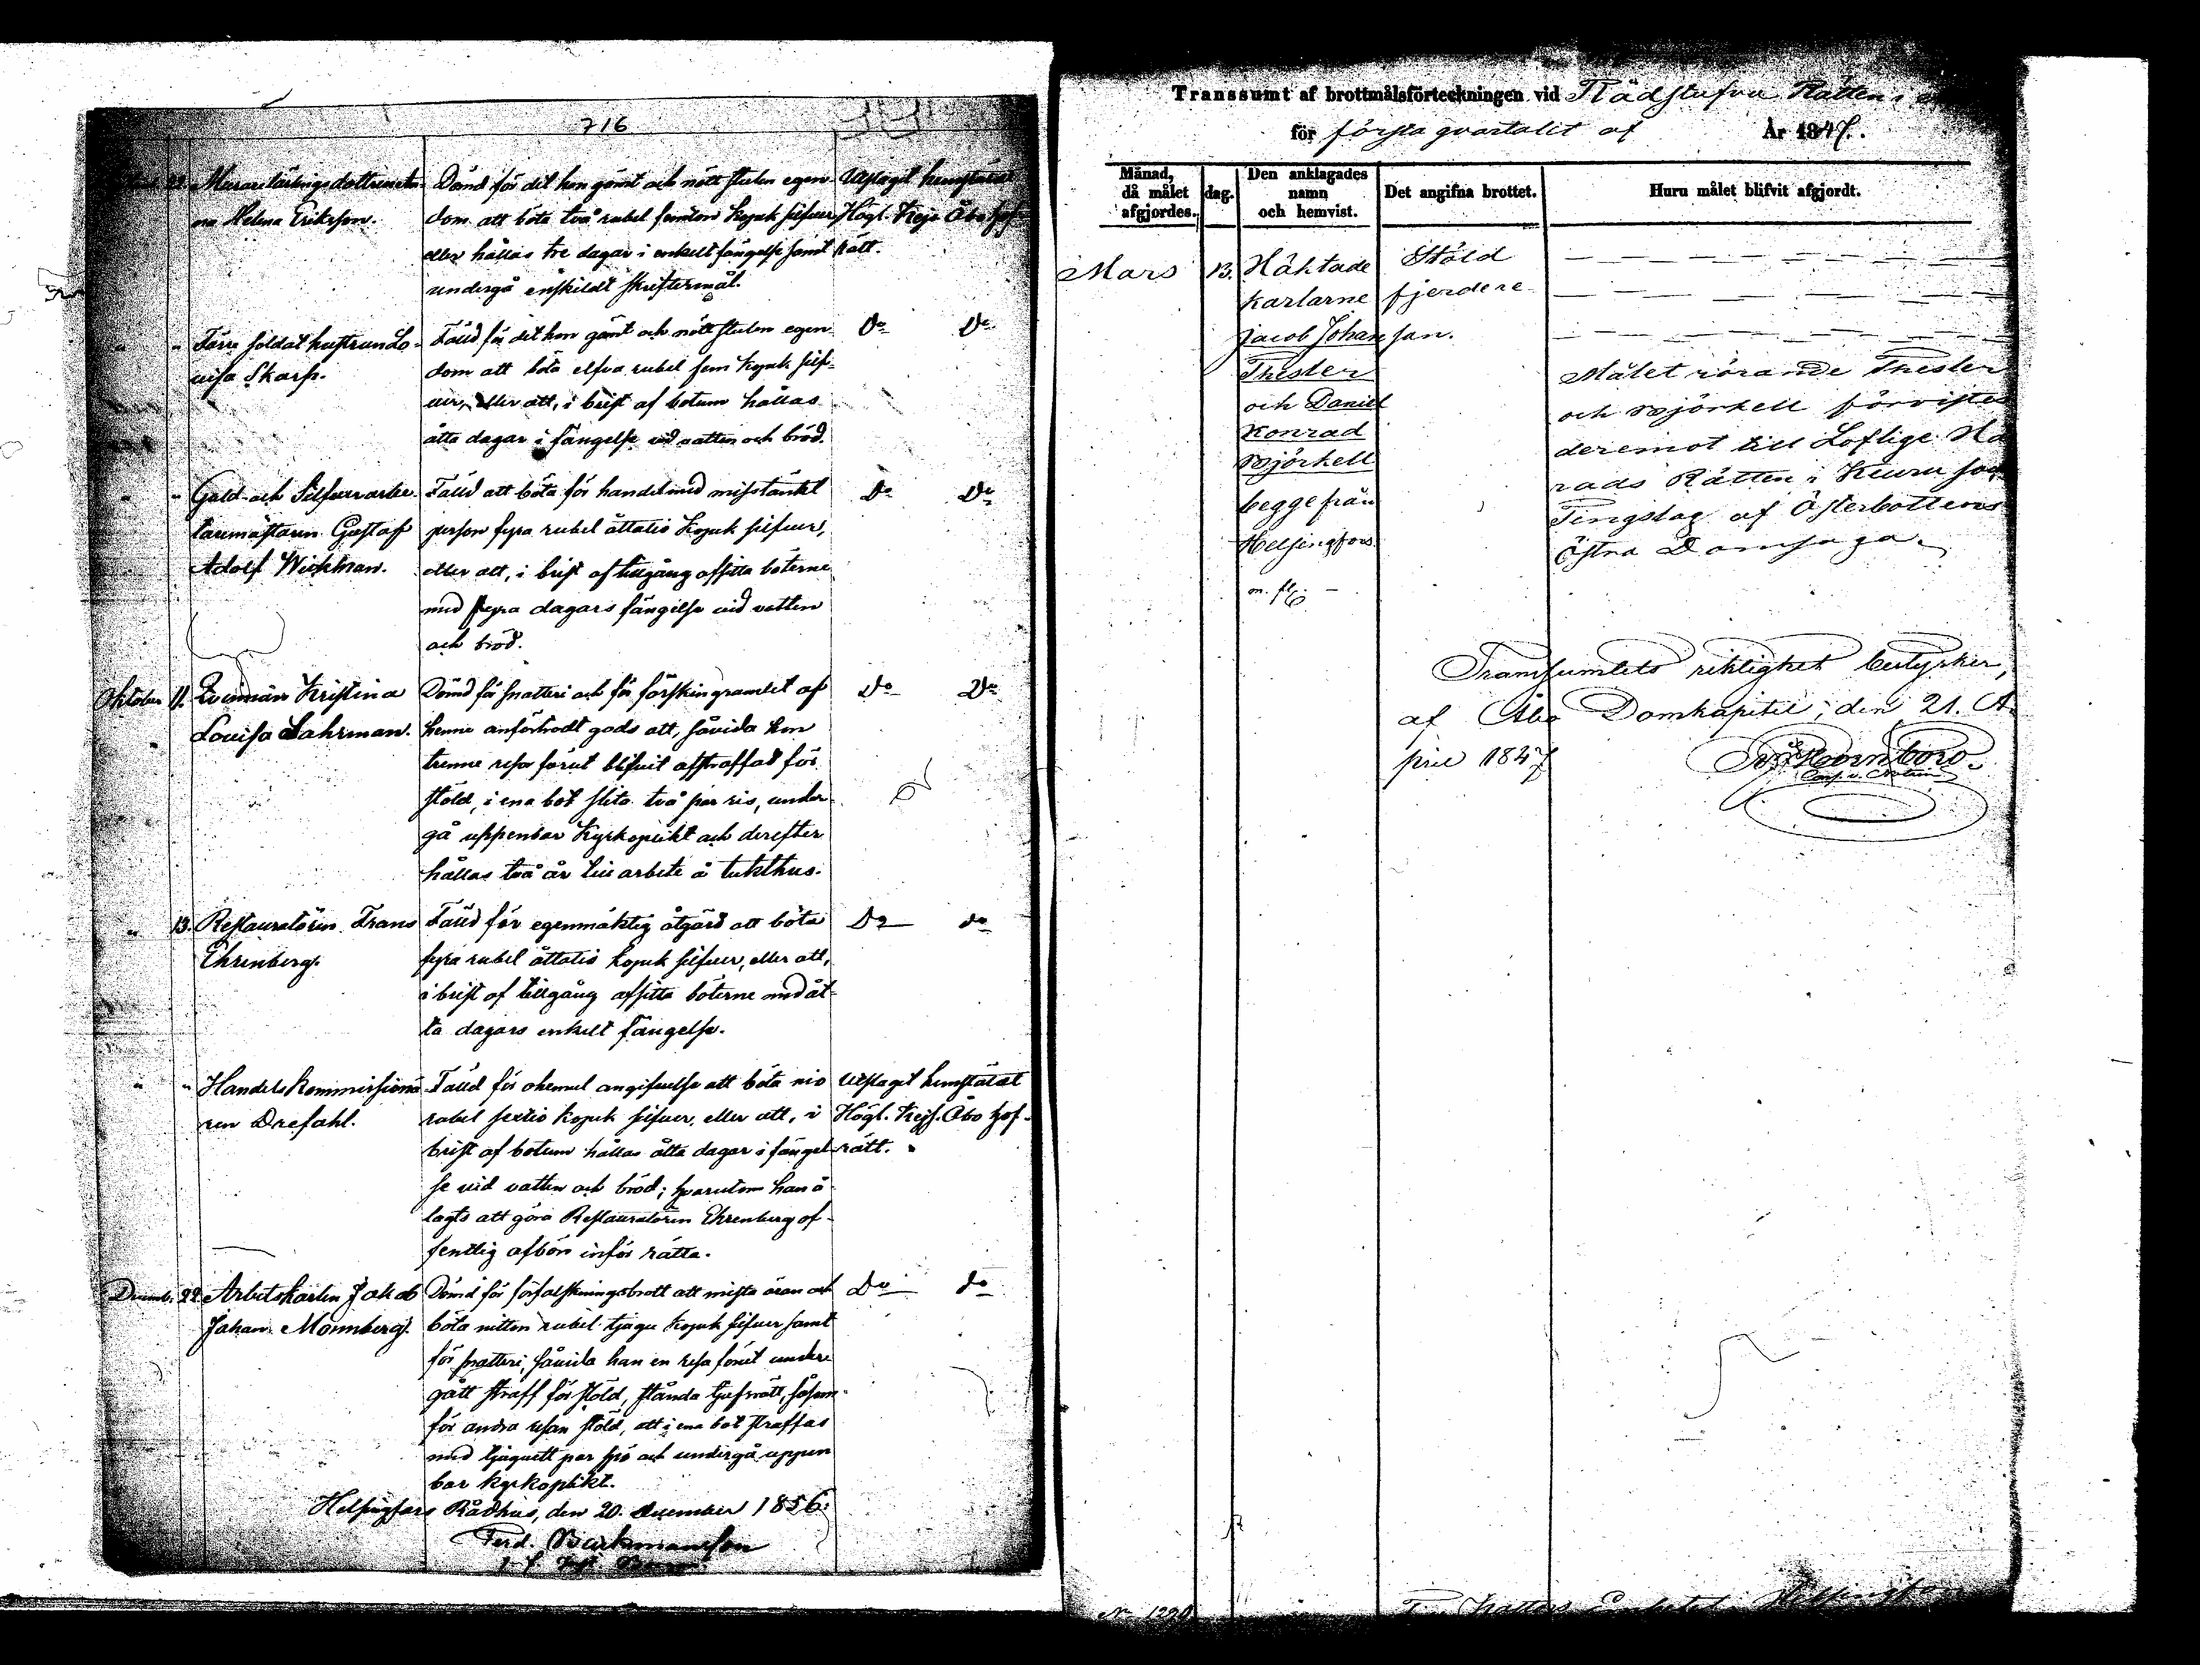 716
22. Murarelärlings dottren
na Helena Eriksson.
Dömd för det hon gömt och nött stulen egen-
dom att böta två rubel femton kopek silfver,
eller hållas tre dagar i enkelt fängelse samt
undergå enskildt skriftermål.
Utslaget hemstäldt
Högl. Kejs. Åbo Hof-
rätt.
" " Förre soldat hustrun Lo-
visa Skarp.
Fälld för det hon gömt och nött stulen egen-
dom att böta elfva rubel fem kopek silf-
ver, eller att, i brist af botum hållas
åtta dagar i fängelse vid vatten och bröd.
Do Do
" " Guld- och Silfverarbe-
taremästaren Gustaf
Adolf Wickman.
Fälld att böta för handel med misstänkt
person fyra rubel åttatio kopek silfver,
eller att, i brist af tillgång afsitta böterne
med fyra dagars fängelse vid vatten
och bröd.
Do Do
Oktober 11. Qvinnan Kristina
Lovisa Lahrman.
Dömd för snatteri och för förskingrandet af
henne anförtrodt gods att, såvida hon
trenne resor förut blifvit afstraffad för
stöld, i ena bot slita två par ris, under-
gå uppenbar Kyrkoplikt och derefter
hållas två år till arbete å tukthus.
Do Do
" 13. Restauratören Frans
Ehrenberg.
Fälld för egenmäktig åtgärd att böta
fyra rubel åttatio kopek silfver, eller att,
i brist af tillgång afsitta böterne med åt-
ta dagars enkelt fängelse.
Do do
" " Handels Kommissionä-
ren Drefahl.
Fälld för ohemul angifvelse att böta nio
rubel sextio kopek silfver, eller att, i
brist af botum hållas åtta dagar i fängel-
se vid vatten och bröd; hvarutom han å-
lagts att göra Restauratören Ehrenberg of-
fentlig afbön inför rätta.
Utslaget hemstäldt
Högl. Kejs. Åbo Hof-
rätt.
Decemb. 22. Arbetskarlen Jakob
Johan Mönnberg.
Dömd för förfalskningsbrott att mista äran och
böta nitton rubel tjugu kopek silfver samt
för snatteri, såvida han en resa förut under-
gått straff för stöld, stånda tjufsrätt, såsom
för andra resan stöld, att i ena bot straffas
med tjuguett par spö och undergå uppen
bar kyrkoplikt.
Do do
Helsingfors Rådhus, den 20. December 1856.
Ferd.
Transsumt af brottmålsförteckningen vid Rådstufvu Rätten i
för första qvartalet af År 1847.
Månad,
då målet
afgjordes.
dag.
Den anklagades
namn
och hemvist.
Det angifna brottet.
Huru målet blifvit afgjordt.
Mars 13. Häktade
karlarne
Jacob Johan
Thesler
och Daniel
Konrad
Björkell
begge från
Helsingfors
m. fl.
Stöld
fjerde re-
san.
Målet rörande Thesler
och Björkell förvistes
deremot till Loflige Hä
rads Rätten i Keuru
Tingslag af Österbottens
Östra Domsaga.
Transsumtets riktighet bestyrker,
af Åbo Domkapitel; den 21. A-
pril 1847
No 1220